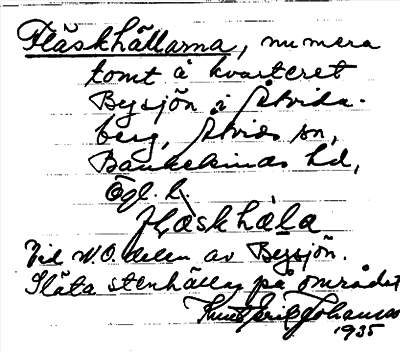 Fläskhällarna, numera
tomt å kvarteret
Bysjön i Åtvida-
berg, Åtvids sn,
Bankekinds hd,
Ögl. l.
flaskhàla
Vid N.O. delen av Bysjön.
Släta stenhällar på området
Knut Erik Johansson
1935